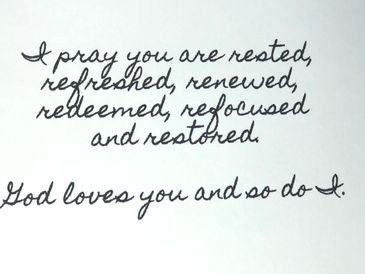 I pray you are rested,
refreshed, renewed,
redeemed, refocused
and restored.
God loves you and so do I.